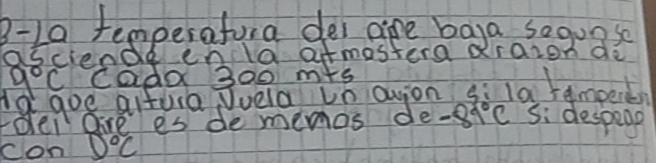 3-La temperatura del aire baja segun se
asciende en la atmosfera a razon de
9°C cada 300 mts
A que altura Vuela un avion si la temperatura
del aire es de memos de -81°C si despego
con 0°C